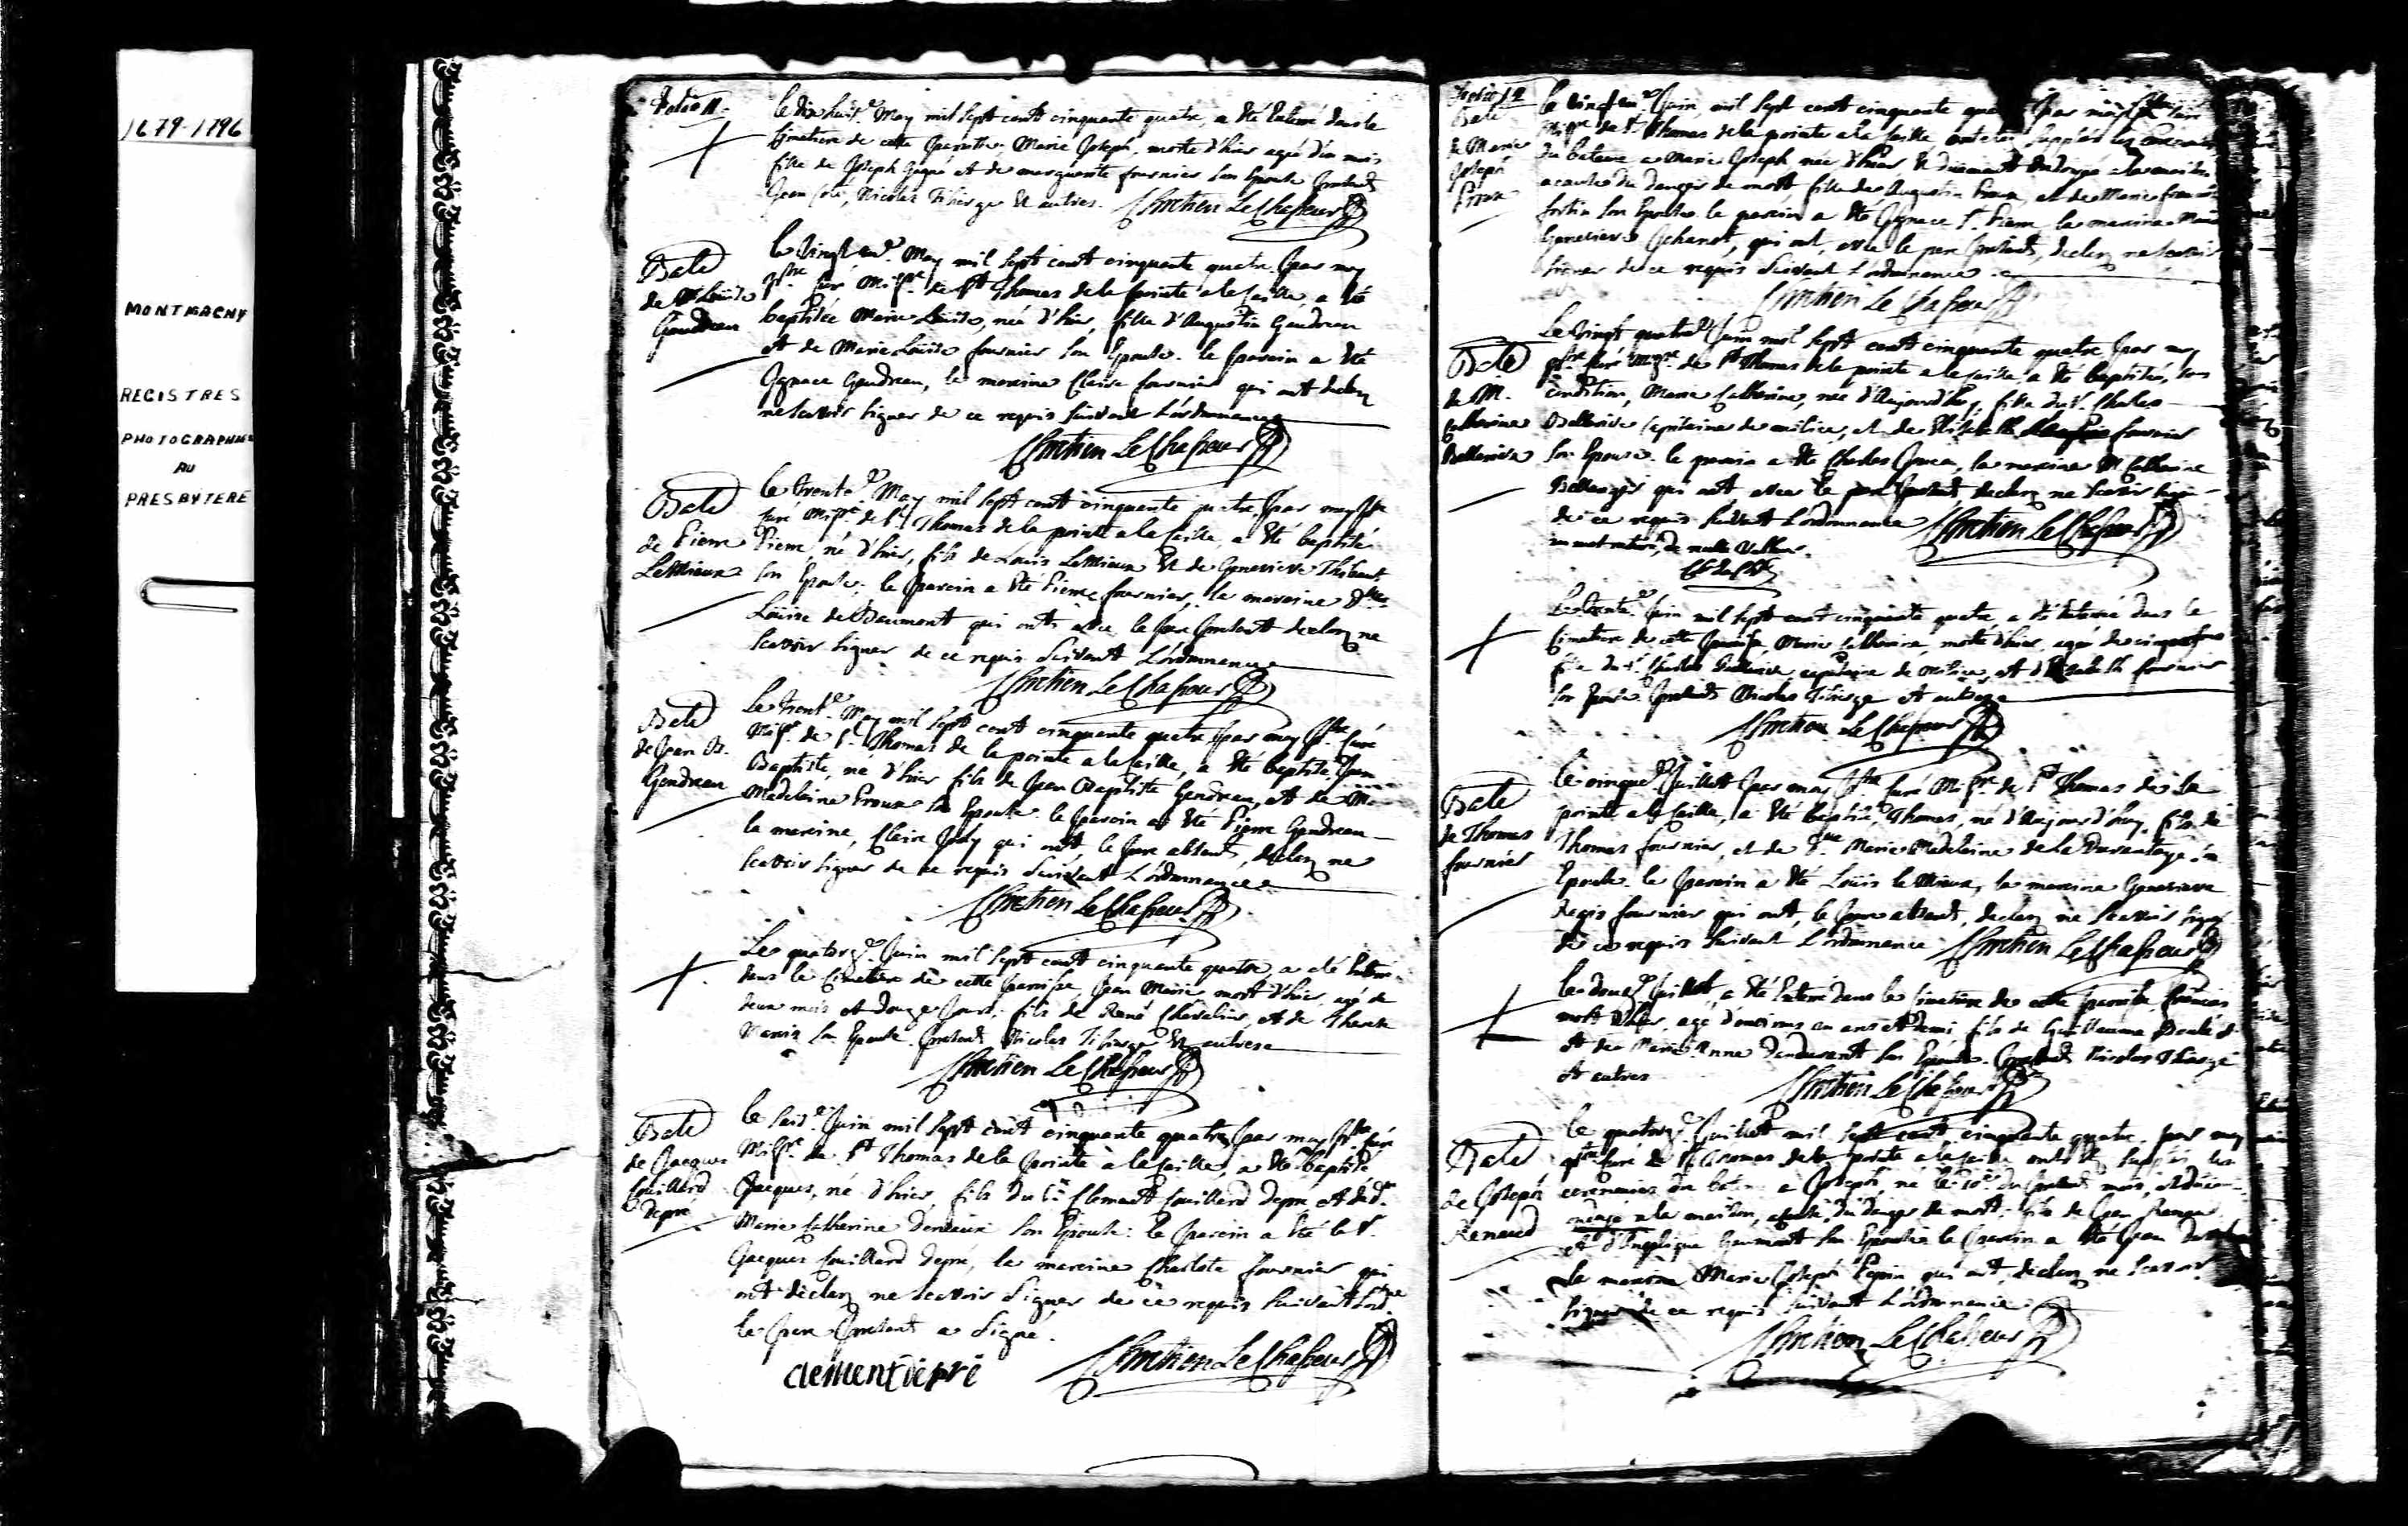 1679-1796
MONTMAGNY
REGISTRES
PHOTOGRAPHIES
AU
PRESBYTERE
Folio 11.
le dix huit.e May mil sept cent cinquante quatre, a été enterré dans le
cimetiere de cette paroisse, Marie Joseph, morte d'hier agée d'un mois
fille de Joseph Gagné et de marguerite fournier son Epouse presents
Jean Coté, Nicolas Tiberge et autres. Chretien LeChasseur
Bate
de M Louise
Gaudreau
le vingt un.e May mil sept cent cinquante quatre par moy
p.tre Curé Miss.re de S.t Thomas de la pointe a la Caille, a été
baptisée Marie Louise, née d'hier, fille d'Augustin Gaudreau
et de Marie Louise fournier son Epouse. le parein a été
Ignace Gaudreau, la mareine Claire fournier qui ont declaré
ne scavoir signer de ce requis suivant L'ordonnance
Chretien LeChasseur
Bate
de Pierre
LeMieux
le trente.e May mil sept cent cinquante quatre, par moy p.tre
Curé Miss.re de S.t Thomas de la pointe a la Caille, a été baptisé
Pierre, né d'hier, fils de Louis LeMieux et de Genevieve Thibaut
son Epouse; le parein a été Pierre fournier, la mareine D.lle
Louise de Beaumont qui ont, avec le pere present declaré ne
scavoir signer de ce requis suivant L'ordonnance
Chretien LeChasseur
Bate
de Jean B.
Gendreau
Le trent.e May mil sept cent cinquante quatre par moy p.tre Curé
Miss.re de S.t Thomas de la pointe a la Caille, a été baptisé Jean
Baptiste, né d'hier fils de Jean Baptiste Gendreau, et de
Madeleine Proux son Epouse. le parein a été Pierre Gendreau
la mareine, Claire Joly qui ont, le pere absent, declaré ne
scavoir signer de ce requis suivant L'ordonnance
Chretien LeChasseur
Le quatorz.e Juin mil sept cent cinquante quatre, a été enterré
dans le Cimetiere de cette paroisse, Jean Marie mort d'hier, agé de
deux mois et douze jours, fils de René Chevalier, et de Therese
son Epouse. presents Nicolas Tiberge et autres
Chretien LeChasseur
Bate
de Jacques
Couillard
Depré
le seiz.e Juin mil sept cent cinquante quatre, par moy p.tre Curé
Miss.re de S.t Thomas de la pointe à la Caille, a été baptisé
Jacques, né d'hier, fils du S.r Clement Couillard Depré et de d.e
Marie Catherine Denieau son Epouse: le parein a été le S.r
Jacques Couillard depré, la mareine Charlote fournier qui
ont declaré ne scavoir signer de ce requis suivant l'ord.ce
le pere present a signé.
clement depré Chretien LeChasseur
Folio 12
Bate
de Marie
Joseph
Proux
le vingt un.e Juin, mil sept cent cinquante quatre par moy p.tre Curé
Miss.re de S.t Thomas de la pointe a la Caille, ont été suppléés les ceremonies
du bateme a Marie Joseph née d'hier, et duement ondoyée a la maison
a cause du danger de mort fille de Augustin Proux, et de Marie
fortin son Epouse. le parein a été Ignace S.t Pierre la mareine Marie
Genevieve qui ont, avec le pere present, declaré ne scavoir
signer de ce requis suivant L'ordonnance
Chretien LeChasseur
Bate
de M.
Catherine
Bellerive
Le vingt quatre.e Juin mil sept cent cinquante quatre par moy
p.tre Curé Miss.re de S.t Thomas de la pointe a la Caille, a été baptisée, sous
condition, Marie Catherine, née d'Aujourd'huy, fille du S.r Charles
Bellerive Capitaine de milice, et de Elisabeth fournier
son Epouse. le parein a été Charles la mareine M Catherine
qui ont avec le pere present, declaré ne scavoir signer
de ce requis suivant L'ordonnance Chretien LeChasseur
un mot raturé, de nulle valleur.
Le trente.e Juin mil sept cent cinquante quatre, a été enterré dans le
Cimetiere de cette paroisse, Marie Catherine, morte d'hier, agée de cinq jours
fille du S.r Charles Bellerive, capitaine de Milice, et d'Elisabeth fournier
son Epouse presents Nicolas Tiberge et autres
Chretien LeChasseur
Bate
de Thomas
fournier
le cinque.e Juillet par moy p.tre Curé Miss.re de S.t Thomas de la
pointe a la Caille, a été baptisé, Thomas, né d'Aujourd'huy, fils de
Thomas fournier, et de Marie Madeleine de La Durantaye son
Epouse. le parein a été Louis le Mieux, la mareine Genevieve
Regis fournier qui ont, le pere absent, declaré ne scavoir signer
de ce requis suivant L'ordonnance Chretien LeChasseur
le douz.e Juillet, a été enterré dans le cimetiere de cette paroisse, François
mort d'hier, agé d'environs un an et demi, fils de Guillaume
et de Marie Anne son Epouse. presents Nicolas Tiberge
et autres Chretien LeChasseur
Bate
de Joseph
Renaud
le quatorz.e Juillet mil sept cent, cinquante quatre. par moy
p.tre Curé de S.t Thomas de la pointe a la Caille ont été suppléés les
ceremonies du bateme a Joseph né le 10.e du present mois, et
a la maison, a cause du danger de mort, fils de Jean
et d'Angelique Gaumont son Epouse le parein a été Jean
la mareine Marie Joseph Pepin qui ont, declaré ne scavoir
signer de ce requis suivant L'ordonnance
Chretien LeChasseur